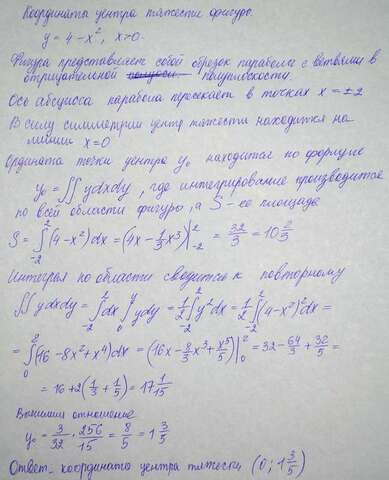 Координаты центра тяжести фигуры.
y = 4 - x², x > 0.
Фигура представляет собой обрезок параболы с ветвями в
отрицательной полуплоскости.
Ось абсцисса парабола пересекает в точках x = ±2
В силу симметрии центр тяжести находится на
линии x=0
Ордината точки центра y₀ находится по формуле
y₀ = ∬ ydxdy, где интегрирование производится
по всей области фигуры, а S - ее площадь
S = ∫₋₂² (4-x²)dx = (4x - 1/3 x³)|₋₂² = 32/3 = 10 2/3
Интеграл по области сводится к повторному
∬ ydxdy = ∫₋₂² dx ∫₀^y ydy = 1/2 ∫₋₂² y²dx = 1/2 ∫₋₂² (4-x²)²dx =
= ∫₀² (16 - 8x² + x⁴)dx = (16x - 8/3 x³ + x⁵/5)|₀² = 32 - 64/3 + 32/5 =
= 16 + 2(1/3 + 1/5) = 17 1/15
Вычислим отношение
y₀ = 3/32 · 256/15 = 8/5 = 1 3/5
Ответ - координата центра тяжести (0; 1 3/5)